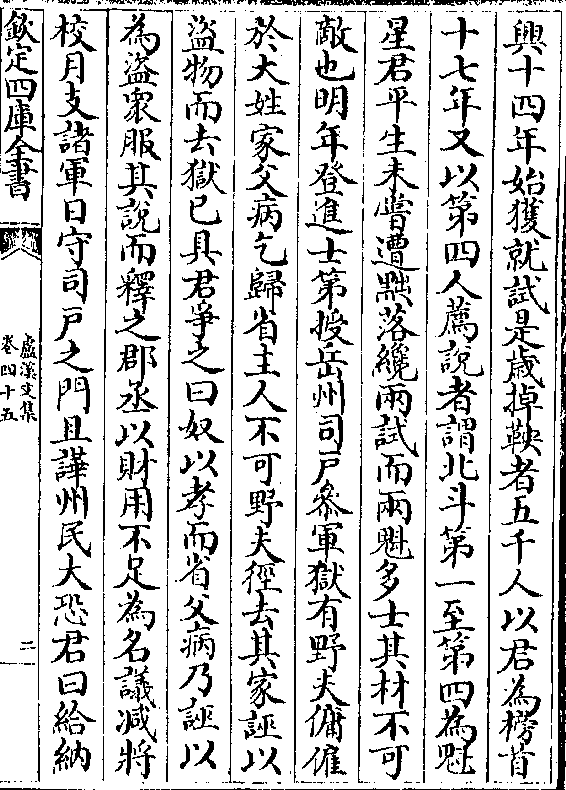 興十四年始獲就試是歲掉鞅者五千人以君為榜首
十七年又以第四人薦說者謂北斗第一至第四為魁
星君平生未嘗遭黜落纔兩試而兩魁多士其材不可
敵也明年登進士第授岳州司戸叅軍獄有野夫傭僱
於大姓家父病乞歸省主人不可野夫徑去其家誣以
盜物而去獄已具君爭之曰奴以孝而省父病乃誣以
為盜衆服其說而釋之郡丞以財用不足為名議减將
校月支諸軍日守司戸之門且譁州民大恐君曰給納
欽定四庫全書
盧溪文集
卷四十五
二